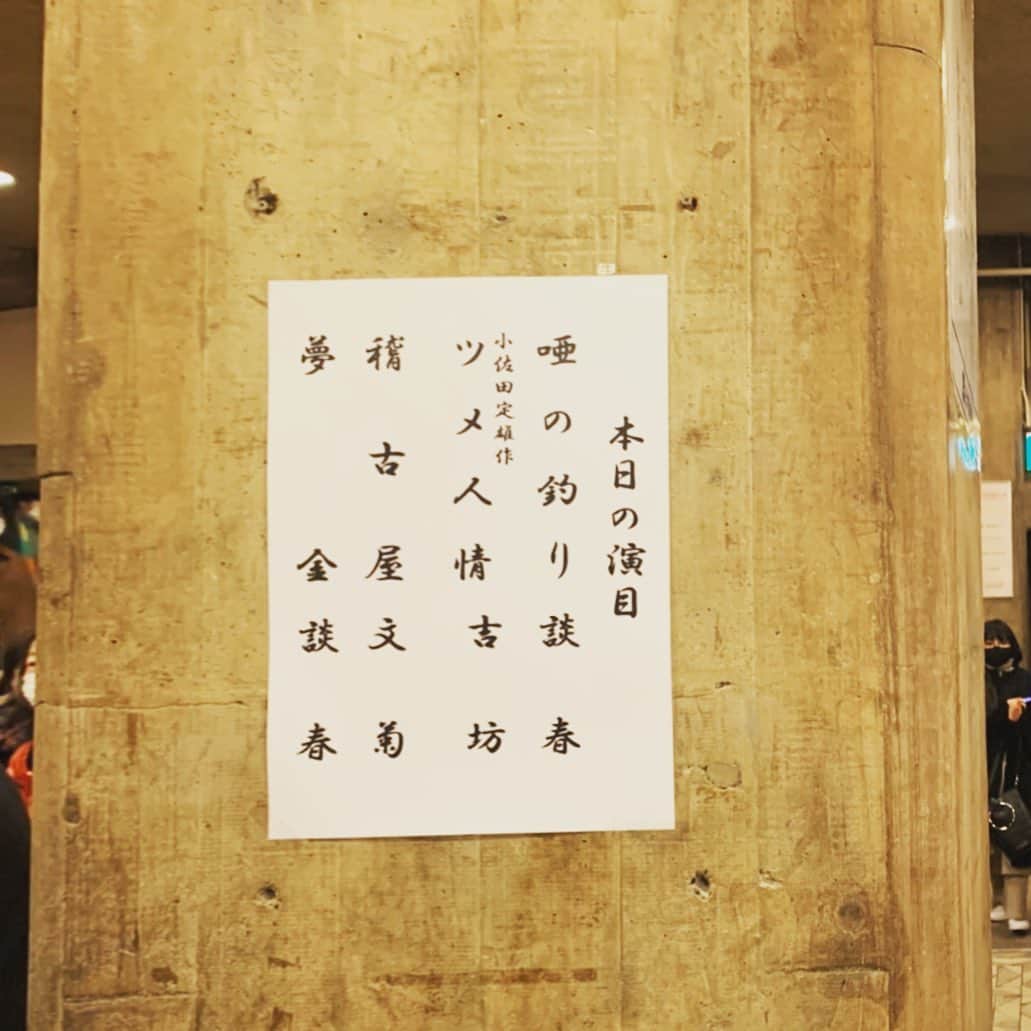 本日の演目
唖の釣り 談春
小佐田定雄作
ツメ人情 吉坊
稽古屋 文菊
夢金 談春